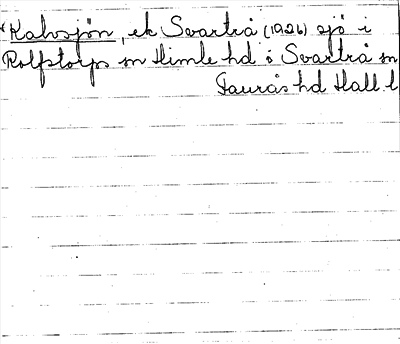 Kalvsjön, ek Svartrå (1926) sjö i
Rolfstorps sn Himle hd o Svartrå sn
Faurås hd Hall l